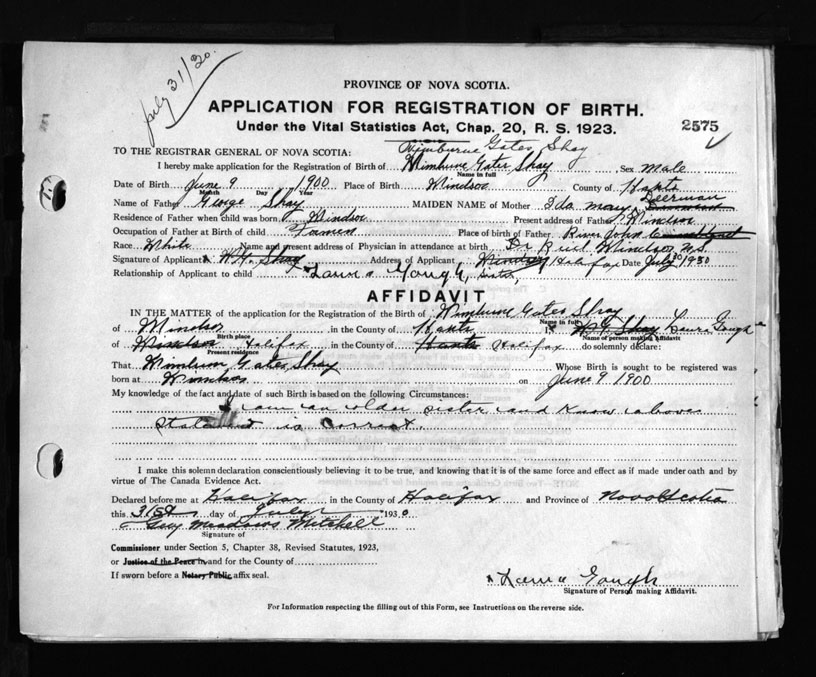 July 31/30.
PROVINCE OF NOVA SCOTIA.
APPLICATION FOR REGISTRATION OF BIRTH.
Under the Vital Statistics Act, Chap. 20, R. S. 1923.
2575
Gates Shay
TO THE REGISTRAR GENERAL OF NOVA SCOTIA:
I hereby make application for the Registration of Birth of Gates Shay Sex Male
Name in full
Date of Birth June 9 1900 Place of Birth Windsor County of Hants
Month Day Year
Deerman
Name of Father George Shay MAIDEN NAME of Mother Ida May
Residence of Father when child was born Windsor Present address of Father Windsor
Occupation of Father at Birth of child Place of birth of Father River John
Race White Name and present address of Physician in attendance at birth Dr Windsor N.S.
Signature of Applicant W.G. Shay Address of Applicant Windsor Halifax Date July 30 1930
Relationship of Applicant to child Laura Gough, sister,
AFFIDAVIT
IN THE MATTER of the application for the Registration of the Birth of Gates Shay
Name in full
of Windsor in the County of Hants I, W G Shay Laura Gough
Birth place
Name of person making affidavit
of Windsor Halifax in the County of Hants Halifax do solemnly declare:
Present residence
That Gates Shay Whose Birth is sought to be registered was
born at Windsor on June 9 1900
My knowledge of the fact and date of such Birth is based on the following Circumstances:
I am an older sister and know above
statement is correct.
I make this solemn declaration conscientiously believing it to be true, and knowing that it is of the same force and effect as if made under oath and by
virtue of The Canada Evidence Act.
Declared before me at Halifax in the County of Halifax and Province of Nova Scotia
this 31st day of July 1930
Guy Meadows Mitchell
Signature of
Commissioner under Section 5, Chapter 38, Revised Statutes, 1923,
or Justice of the Peace in and for the County of
If sworn before a Notary Public affix seal.
x Laura Gough
Signature of Person making Affidavit.
For Information respecting the filling out of this Form, see Instructions on the reverse side.